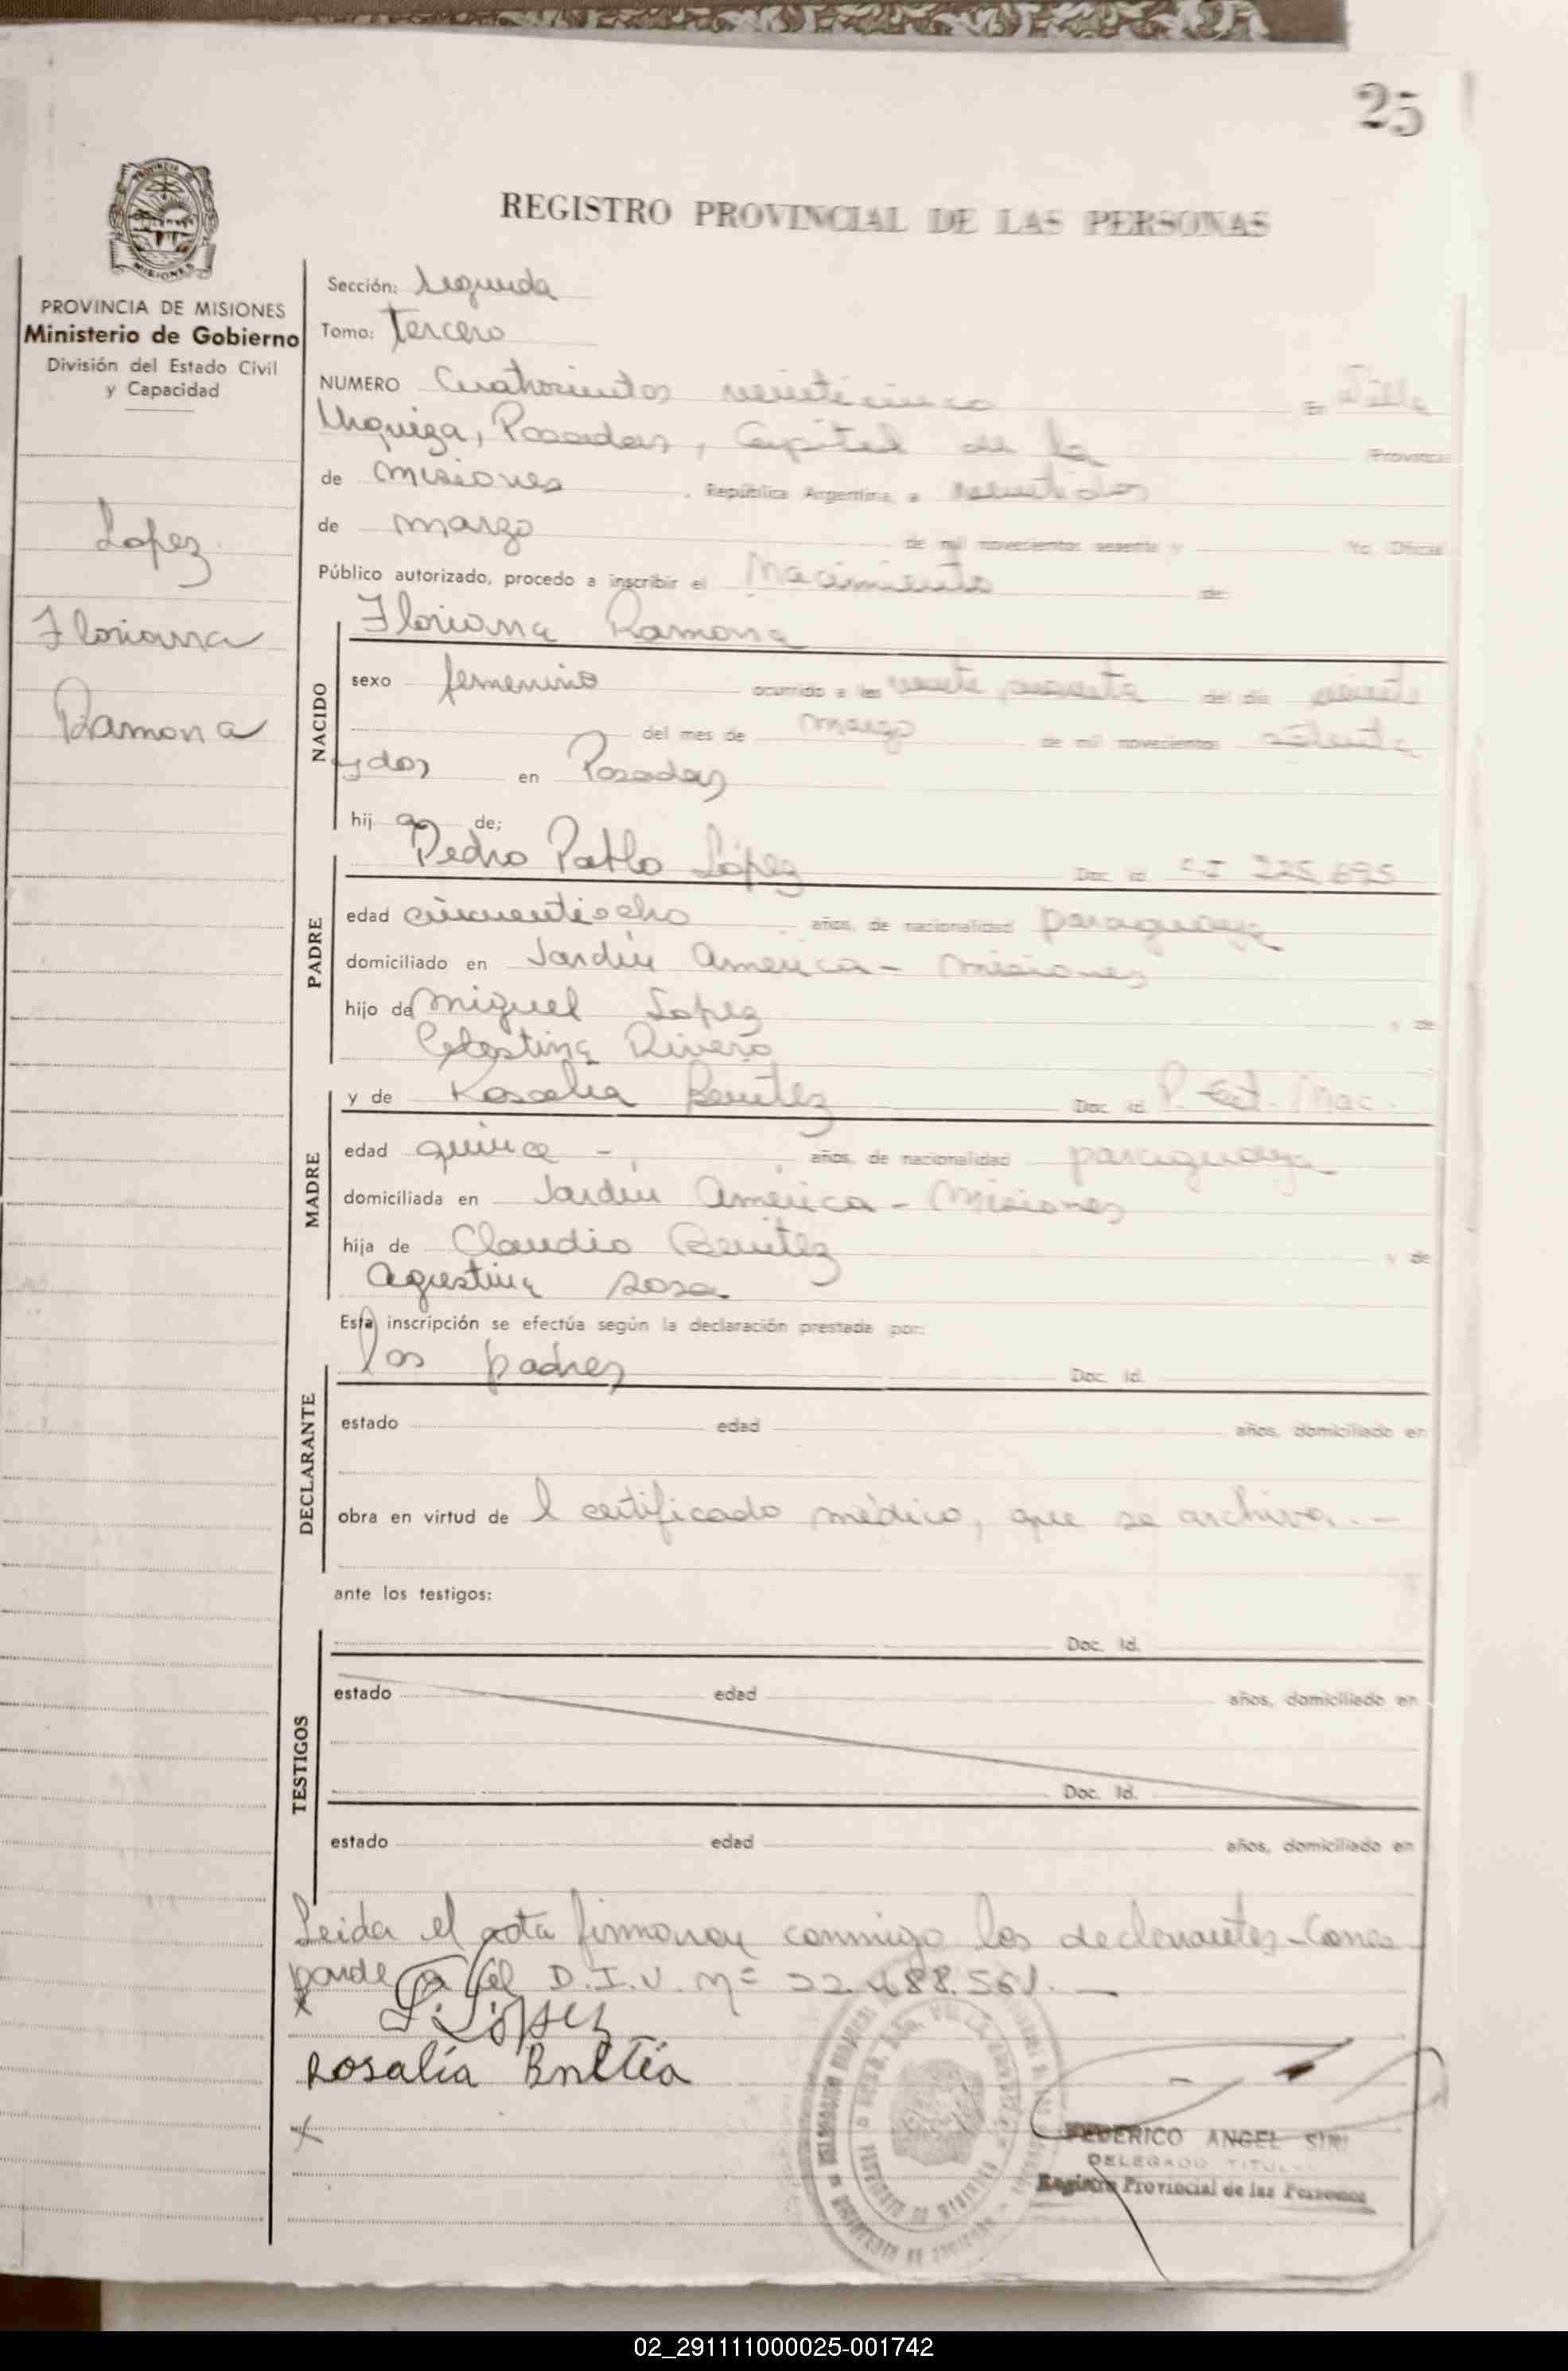 25
REGISTRO PROVINCIAL DE LAS PERSONAS
PROVINCIA DE MISIONES
MISIONES
PROVINCIA DE MISIONES
Ministerio de Gobierno
División del Estado Civil
y Capacidad
Lopez
Floriana
Ramona
Sección: Segunda
Tomo: Tercero
NUMERO Cuatrocientos veinticinco En Villa
Urquiza, Posadas, Capital de la Provincia
de Misiones, República Argentina, a veintidos
de marzo de mil novecientos sesenta y Yo, Oficial
Público autorizado, procedo a inscribir el Nacimiento de:
NACIDO
Floriana Ramona
sexo femenino ocurrido a las veinte, cuarenta del día veinte
del mes de marzo de mil novecientos setenta
y dos en Posadas
hij a de;
PADRE
Pedro Pablo López Doc. Id. C.I 225.695
edad cincuentiocho, años, de nacionalidad paraguaya
domiciliado en Jardín America - Misiones
hijo de Miguel Lopez y de
Celestina Rivero
MADRE
y de Rosalia Benitez Doc. Id. P.
edad quince -, años, de nacionalidad paraguaya
domiciliada en Jardin America - Misiones
hija de Claudio Benitez y de
Agustina Sosa
Esta inscripción se efectúa según la declaración prestada por:
DECLARANTE
los padres Doc. Id.
estado edad años, domiciliado en
obra en virtud de l certificado médico, que se archiva. -
ante los testigos:
TESTIGOS
Doc. Id.
estado edad años, domiciliado en
Doc. Id.
estado edad años, domiciliado en
Leida el acta firmaron conmigo los declarantes - Corres
ponde a el D.I.U. nº 22.488.561. -
x
López
Rosalía
x
FEDERICO ANGEL
DELEGADO TITULAR
Registro Provincial de las Personas
02_291111000025-001742